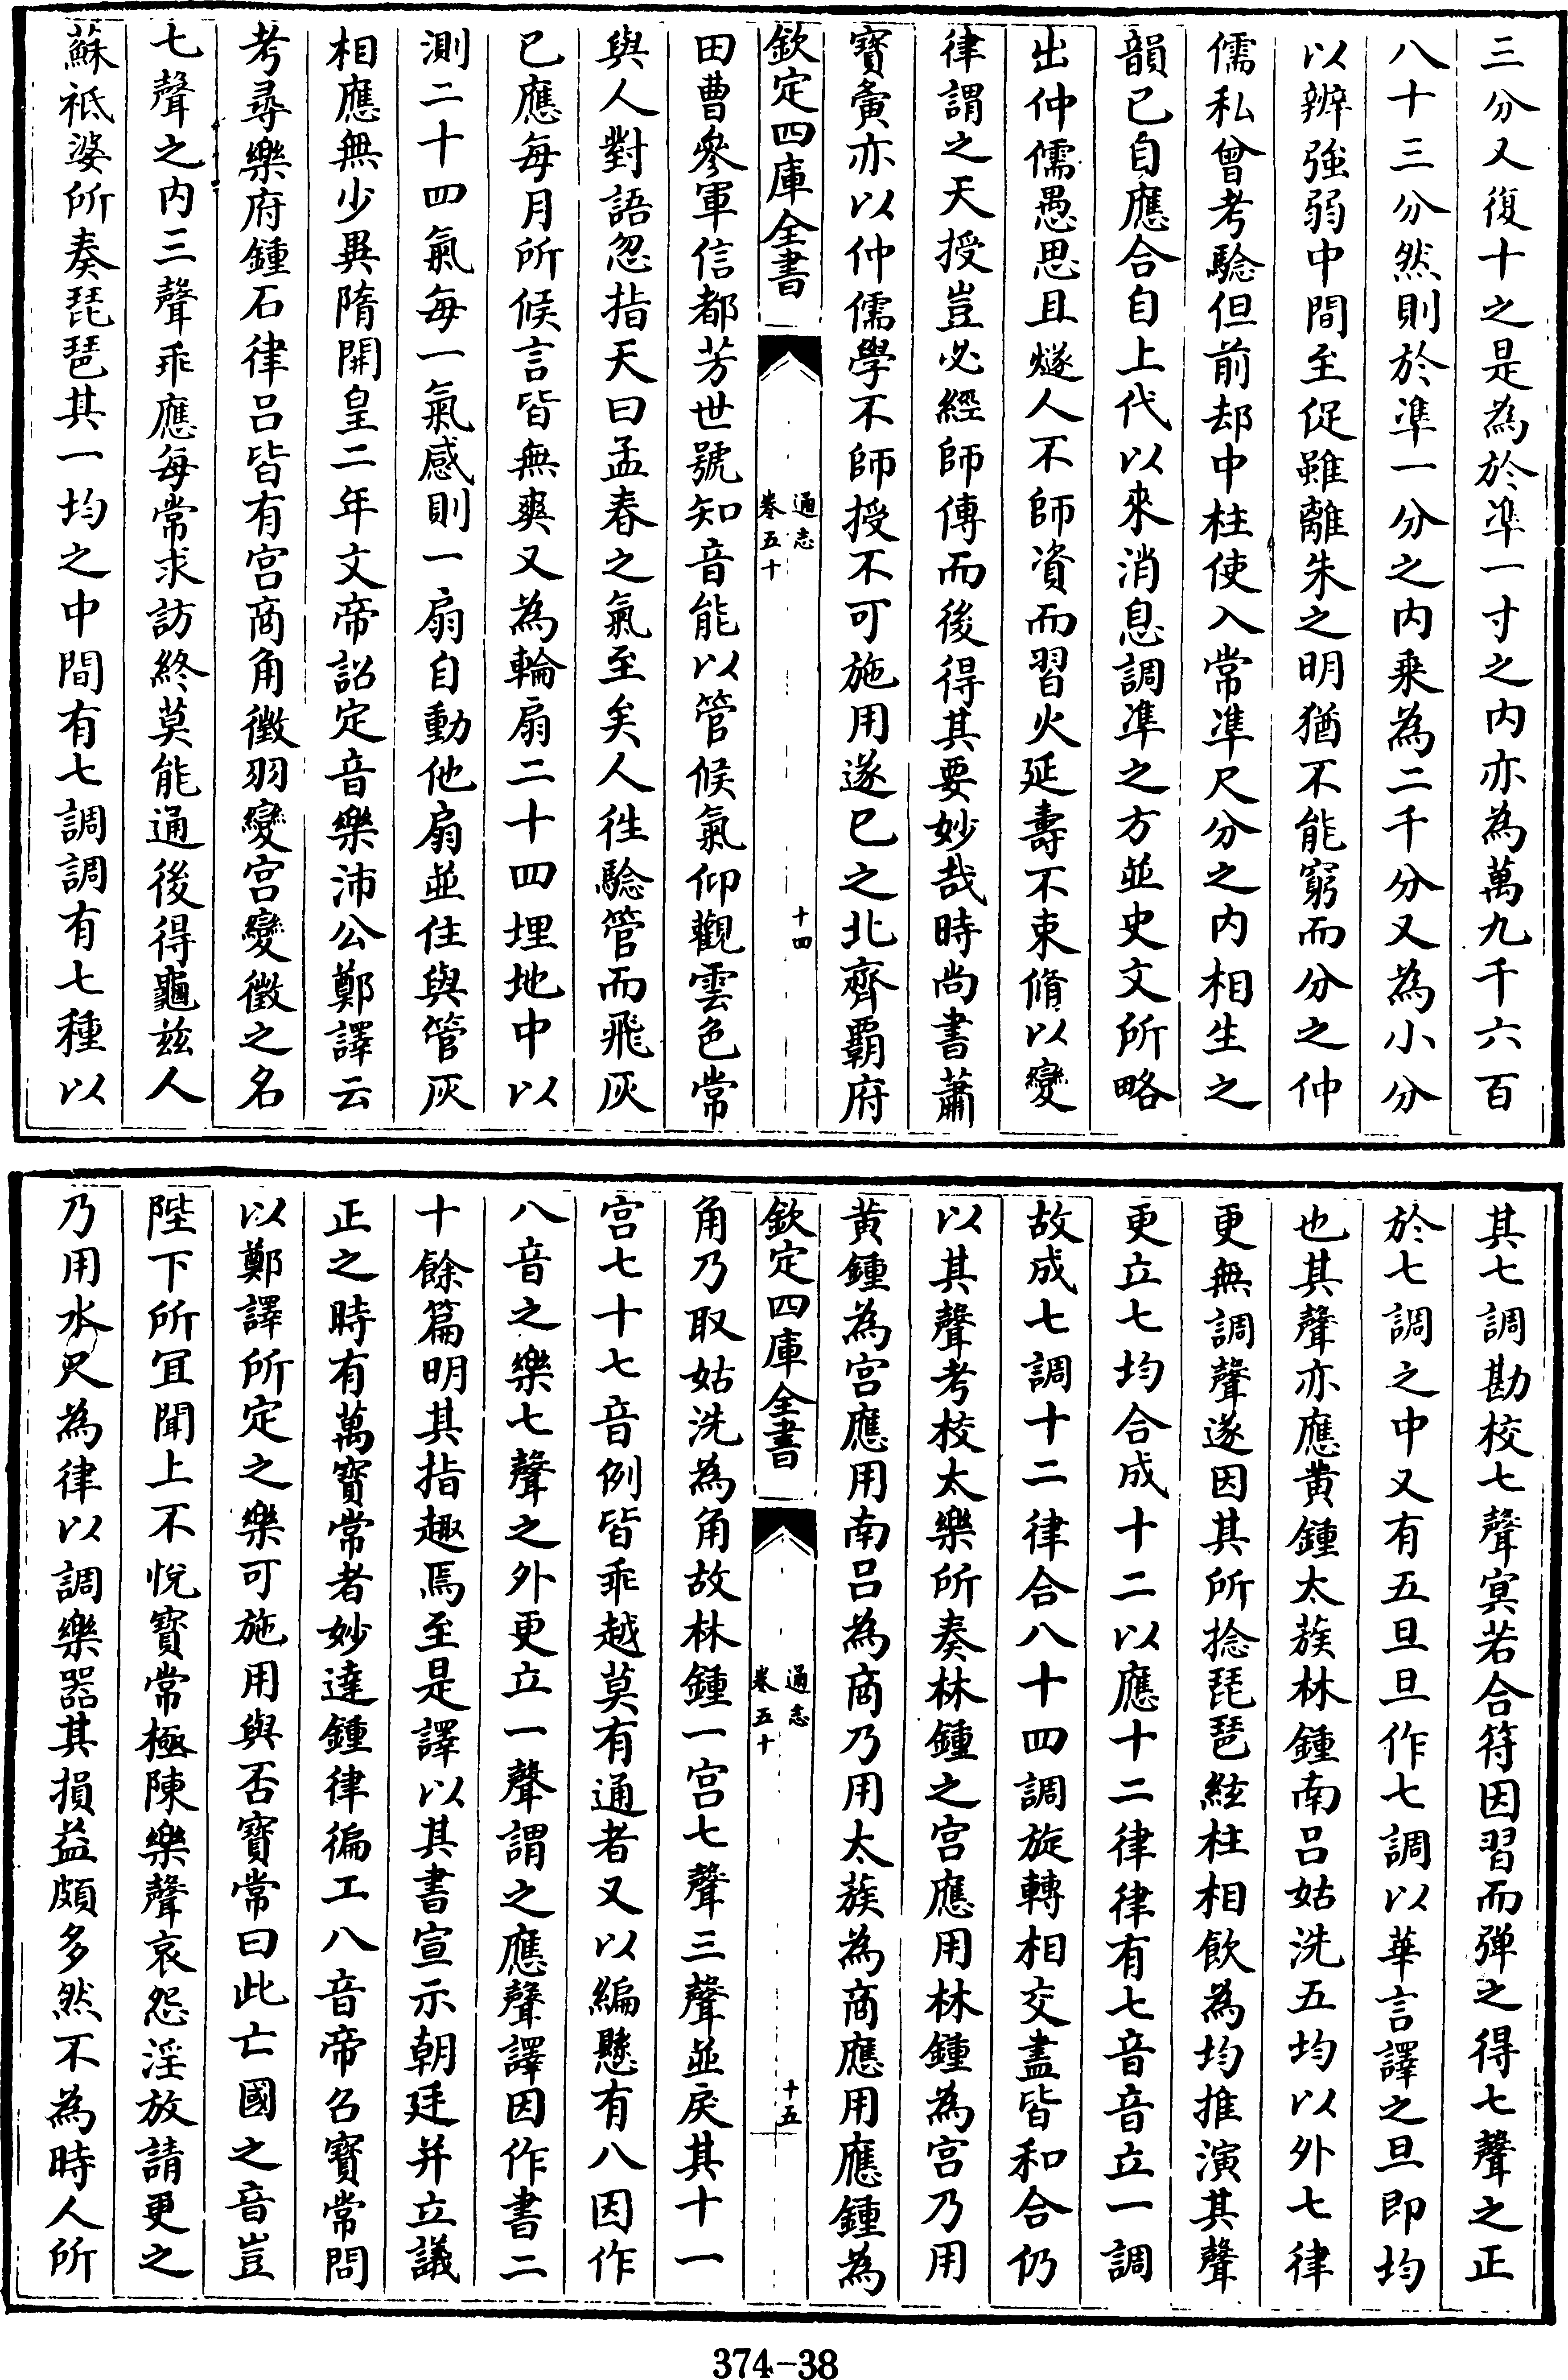 三分又復十之是為於準一寸之内亦為萬九千六百
八十三分然則於準一分之内乗為二千分又為小分
以辨強弱中間至促雖離朱之明猶不能窮而分之仲
儒私曾考驗但前却中柱使入常準尺分之内相生之
韻已自應合自上代以來消息調準之方並史文所略
出仲儒愚思且燧人不師資而習火延壽不束脩以變
律謂之天授豈必經師傳而後得其要妙哉時尚書蕭
寶夤亦以仲儒學不師授不可施用遂已之北齊覇府
欽定四庫全書
通志
卷五十
十四
田曹參軍信都芳世號知音能以管候氣仰觀雲色常
與人對語忽指天曰孟春之氣至矣人徃驗管而飛灰
已應每月所候言皆無爽又為輪扇二十四埋地中以
測二十四氣每一氣感則一扇自動他扇並住與管灰
相應無少異隋開皇二年文帝詔定音樂沛公鄭譯云
考尋樂府鍾石律吕皆有宫商角徵羽變宫變徵之名
七聲之内三聲乖應每常求訪終莫能通後得龜兹人
蘇祗婆所奏琵琶其一均之中間有七調調有七種以
其七調勘校七聲冥若合符因習而弾之得七聲之正
於七調之中又有五旦旦作七調以華言譯之旦即均
也其聲亦應黄鍾太蔟林鍾南吕姑洗五均以外七律
更無調聲遂因其所捻琵琶絃柱相飲為均推演其聲
更立七均合成十二以應十二律律有七音音立一調
故成七調十二律合八十四調旋轉相交盡皆和合仍
以其聲考校太樂所奏林鍾之宫應用林鍾為宫乃用
黄鍾為宫應用南吕為商乃用太蔟為商應用應鍾為
欽定四庫全書
通志
卷五十
十五
角乃取姑洗為角故林鍾一宫七聲三聲並戾其十一
宫七十七音例皆乖越莫有通者又以編懸有八因作
八音之樂七聲之外更立一聲謂之應聲譯因作書二
十餘篇明其指趣焉至是譯以其書宣示朝廷并立議
正之時有萬寶常者妙達鍾律徧工八音帝召寶常問
以鄭譯所定之樂可施用與否寶常曰此亡國之音豈
陛下所冝聞上不恱寶常極陳樂聲哀怨淫放請更之
乃用水尺為律以調樂器其損益頗多然不為時人所
374-38